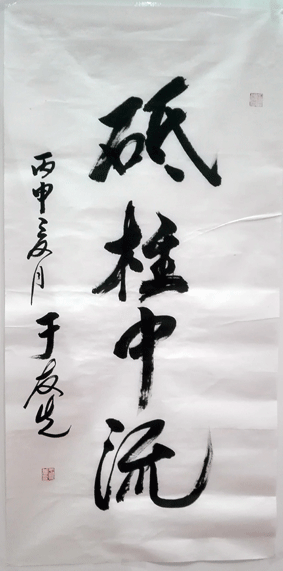 砥柱中流
丙申之夏月
于友先